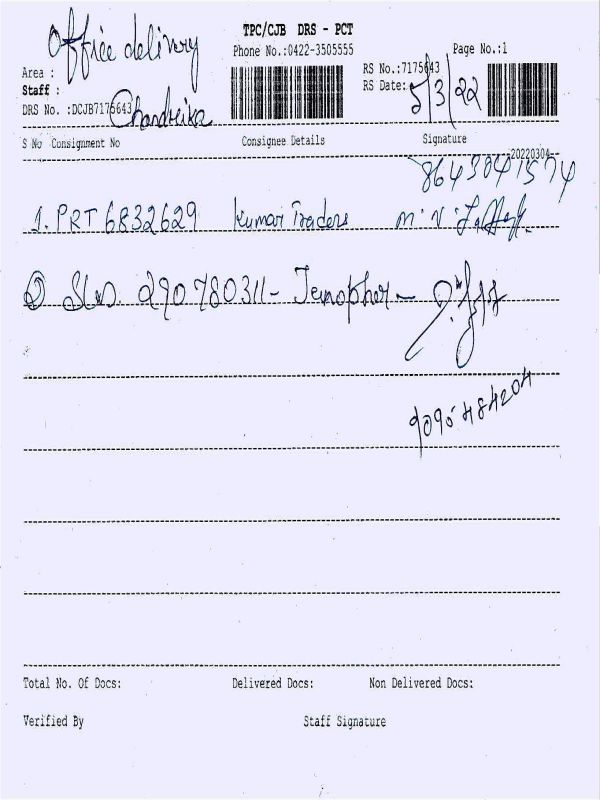 TPC/CJB DRS - PCT
Office delivery
Phone No.:0422-3505555 Page No.:1
Area : RS No.:7175643
Staff : RS Date: 5/3/22
DRS No. :DCJB7175643 Chandrika
S No Consignment No Consignee Details Signature
20220304
8643041574
1. PRT 6832629 Kumar Traders
② 290780311- -
9095484204
Total No. Of Docs: Delivered Docs: Non Delivered Docs:
Verified By Staff Signature